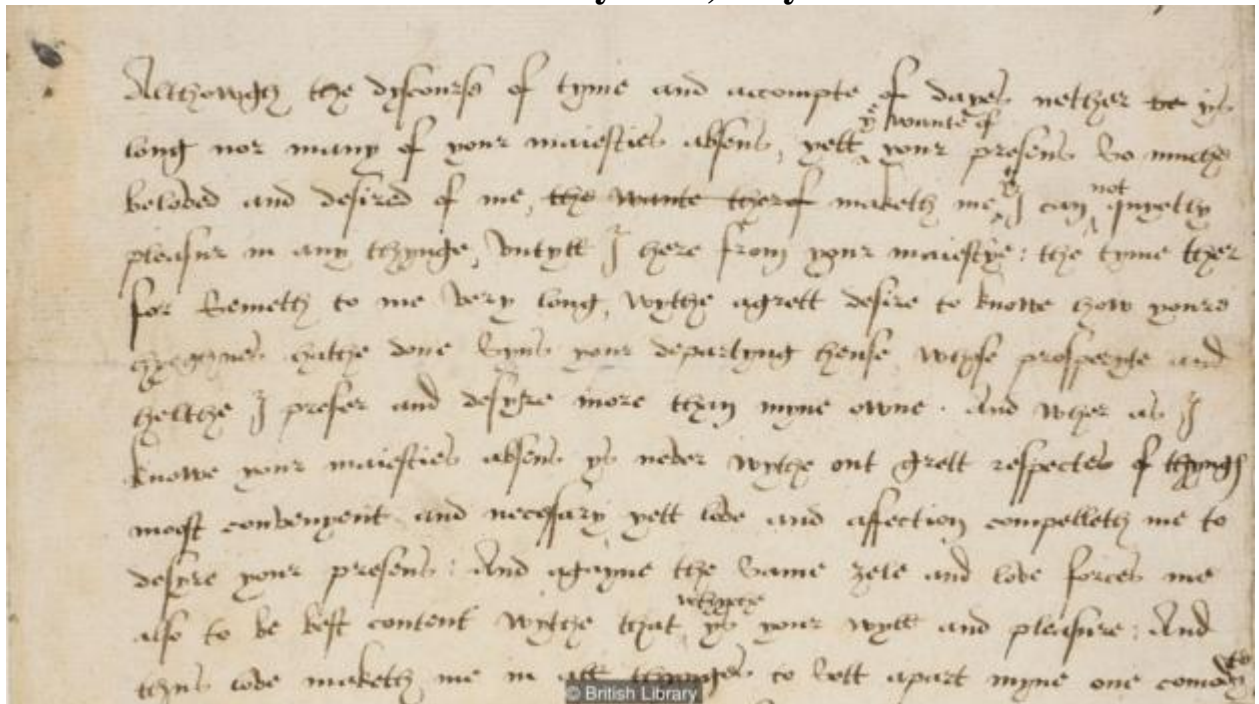 Althowgh the dyscourse of tyme and accompte of dayes nether be ys
long nor many of your maiesties absens, yett yᵉ wante of your presens so muche
beloved and desired of me, the wante therof maketh me yᵗ I can not quyetly
pleasur in any thynge, untyll I here from your maiestye: the tyme ther
for semeth to me very long, wythe a grett desire to knowe how youre
hyghnes hathe done syns your departyng hense whose prosperyte and
helthe I prefer and desyre more than myne owne. And wher as I
knowe your maiesties absens ys never wythe out grett respectes of thyngs
moost convenyent and necessary yett love and affection compelleth me to
desyre your presens: And agayne the same zele and love forces me
also to be best content wythe that whyche ys your wyll and pleasure: And
thus love maketh me in all thynges to sett apart myne one
© British Library